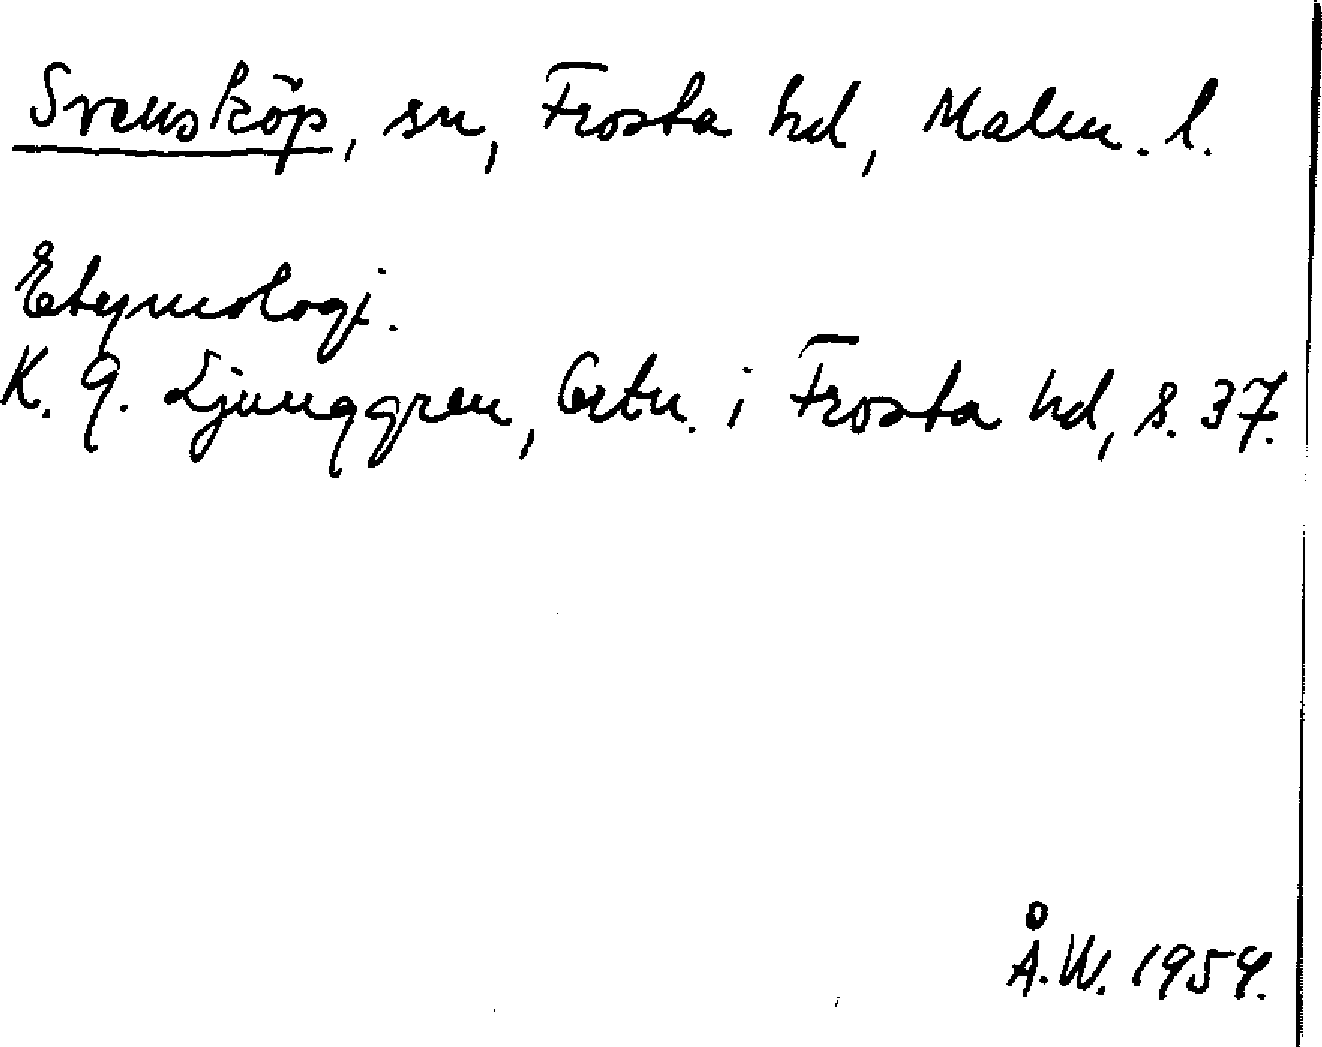 Svensköp, sn, Frosta hd, Malm. l.
Etymologi.
K. G. Ljunggren, Ortn. i Frosta hd, s. 37.
Å.W. 1954.